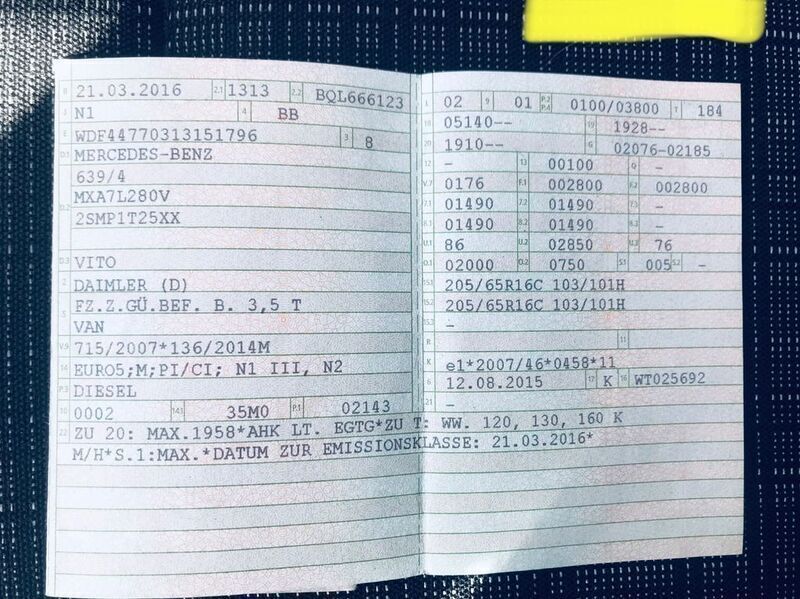 B 21.03.2016 2.1 1313 2.2 BQL666123
J N1 4 BB
E WDF44770313151796 3 8
D.1 MERCEDES-BENZ
639/4
D.2 MXA7L280V
2SMP1T25XX
D.3 VITO
2 DAIMLER (D)
5 FZ.Z.GÜ.BEF. B. 3,5 T
VAN
V.9 715/2007*136/2014M
14 EURO5;M;PI/CI; N1 III, N2
P.3 DIESEL
10 0002 14.1 35M0 P.1 02143
L 02 9 01 P.2 P.4 0100/03800 T 184
18 05140-- 19 1928--
20 1910-- G 02076-02185
12 - 13 00100 Q -
V.7 0176 F.1 002800 F.2 002800
7.1 01490 7.2 01490 7.3 -
8.1 01490 8.2 01490 8.3 -
U.1 86 U.2 02850 U.3 76
O.1 02000 O.2 0750 S.1 005 S.2 -
15.1 205/65R16C 103/101H
15.2 205/65R16C 103/101H
15.3 -
R 11
K e1*2007/46*0458*11
6 12.08.2015 17 K 16 WT025692
21 -
22 ZU 20: MAX.1958*AHK LT. EGTG*ZU T: WW. 120, 130, 160 K
M/H*S.1:MAX.*DATUM ZUR EMISSIONSKLASSE: 21.03.2016*